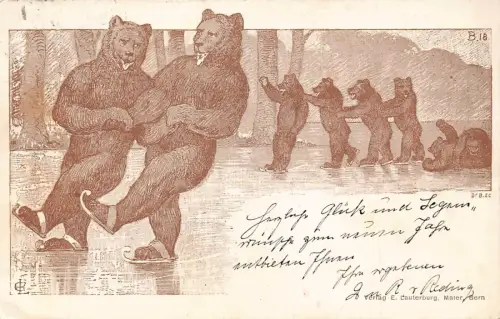 B 18
Herzlich Glück und Segens
wünsche zum neuen Jahr
entbieten Ihnen
Ihr ergebener
R. v. Reding
Verlag E. Lauterburg, Maler, Bern